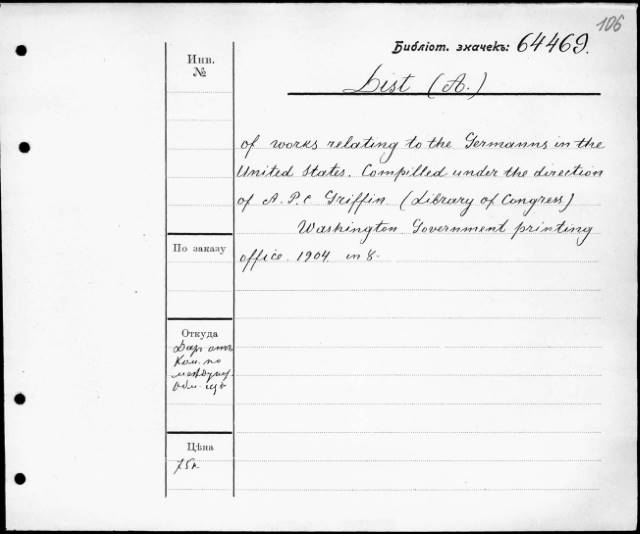 106
Библіот. значекъ: 64469.
Инв.
№
List (A.)
of works relating to the Germanns in the
United States. Compilled under the direction
of A. P. C Griffin (Library of Congress)
Washington Government printing
office. 1904. in 8.
По заказу
Откуда
Даръ отъ
Ком. по
междунар.
обм. изд
Цѣна
75к